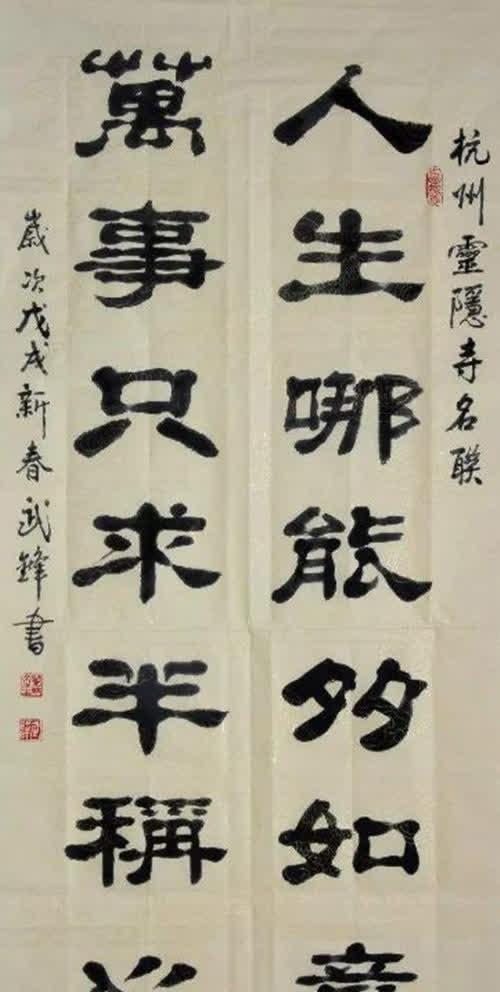 杭州靈隱寺名聯
人生哪能多如意
萬事只求半稱心
歲次戊戌新春武鋒書